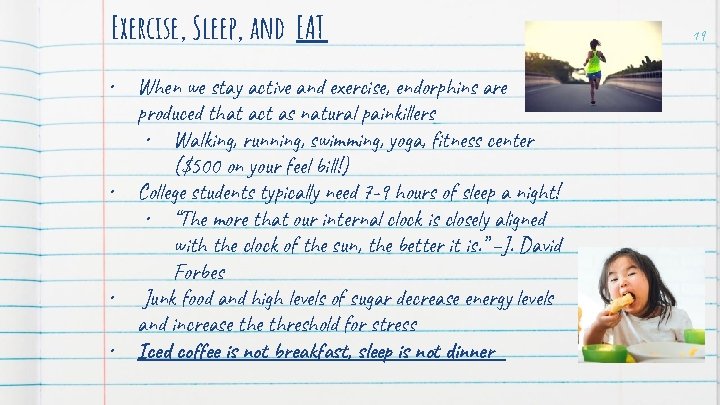 Exercise, Sleep, and EAT
19
• When we stay active and exercise, endorphins are
produced that act as natural painkillers
• Walking, running, swimming, yoga, fitness center
($500 on your feel bill!)
• College students typically need 7-9 hours of sleep a night!
• “The more that our internal clock is closely aligned
with the clock of the sun, the better it is.” –J. David
Forbes
• Junk food and high levels of sugar decrease energy levels
and increase the threshold for stress
• Iced coffee is not breakfast, sleep is not dinner